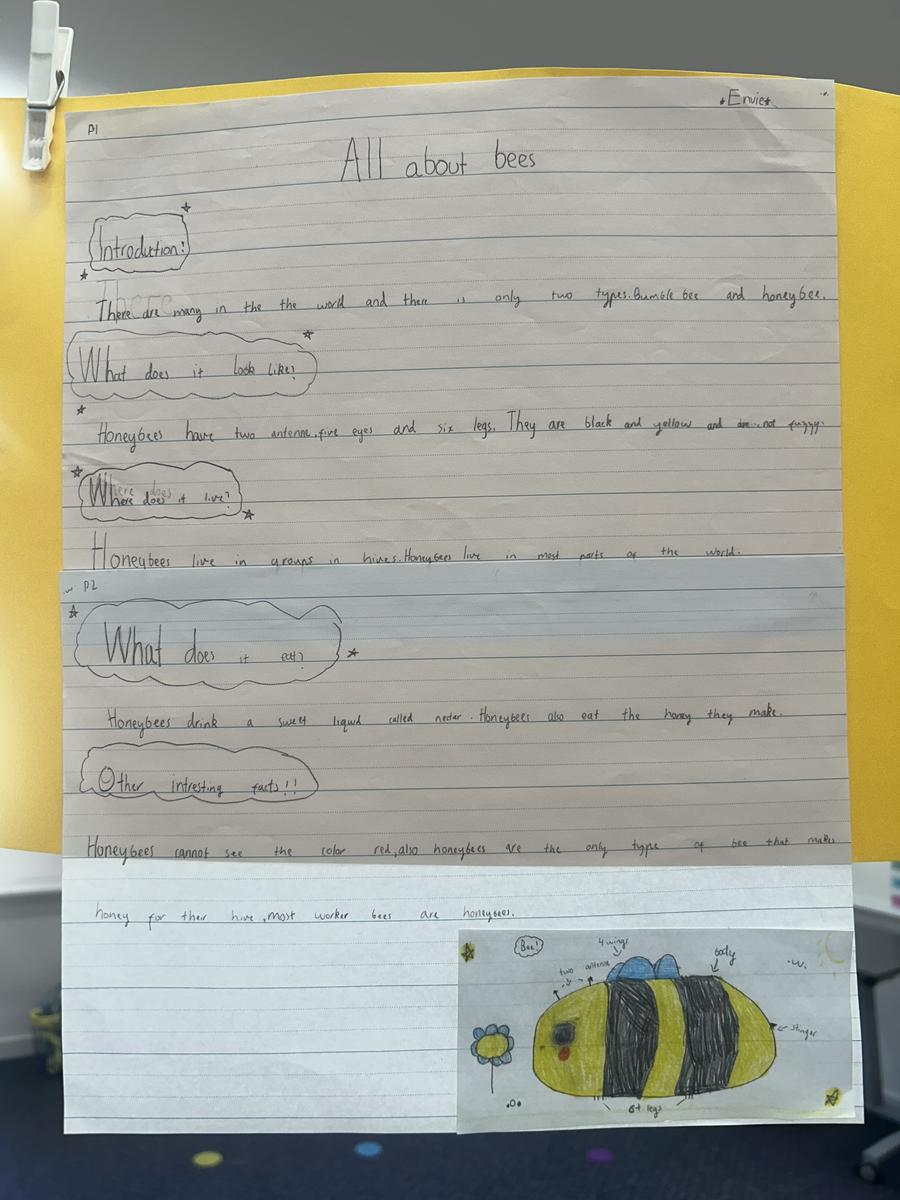 P1
*Envie*
All about bees
Introduction!
There are many in the the world and there is only two types. Bumble bee and honeybee.
What does it look like?
Honeybees have two antenna, five eyes and six legs. They are black and yellow and are not fuzzy.
Where does it live?
Honeybees live in groups in hives. Honeybees live in most parts of the world.
P2
What does it eat?
Honeybees drink a sweet liquid called nectar. Honeybees also eat the honey they make.
Other intresting facts!!
Honeybees cannot see the color red, also honeybees are the only type of bee that makes
honey for their hive, most worker bees are honeybees.
Bee!
4 wings
two antenna
body
stinger
6+ legs